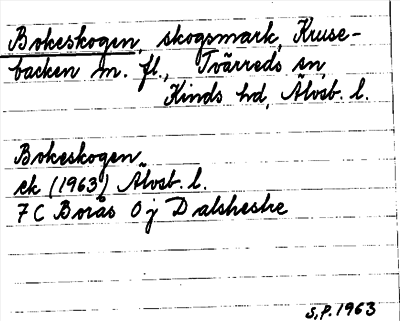 Bokeskogen, skogsmark, Kruse-
backen m. fl., Tvärreds sn,
Kinds hd, Älvsb. l.
Bokeskogen
ek (1963) Älvsb. l.
7 C Borås 0 j Dalsheshe
S.P. 1963